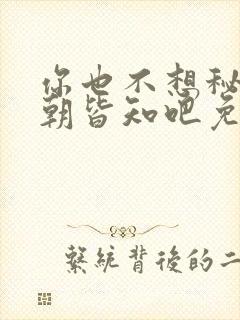 你也不想秘
朝皆知吧免
繫統背後的二